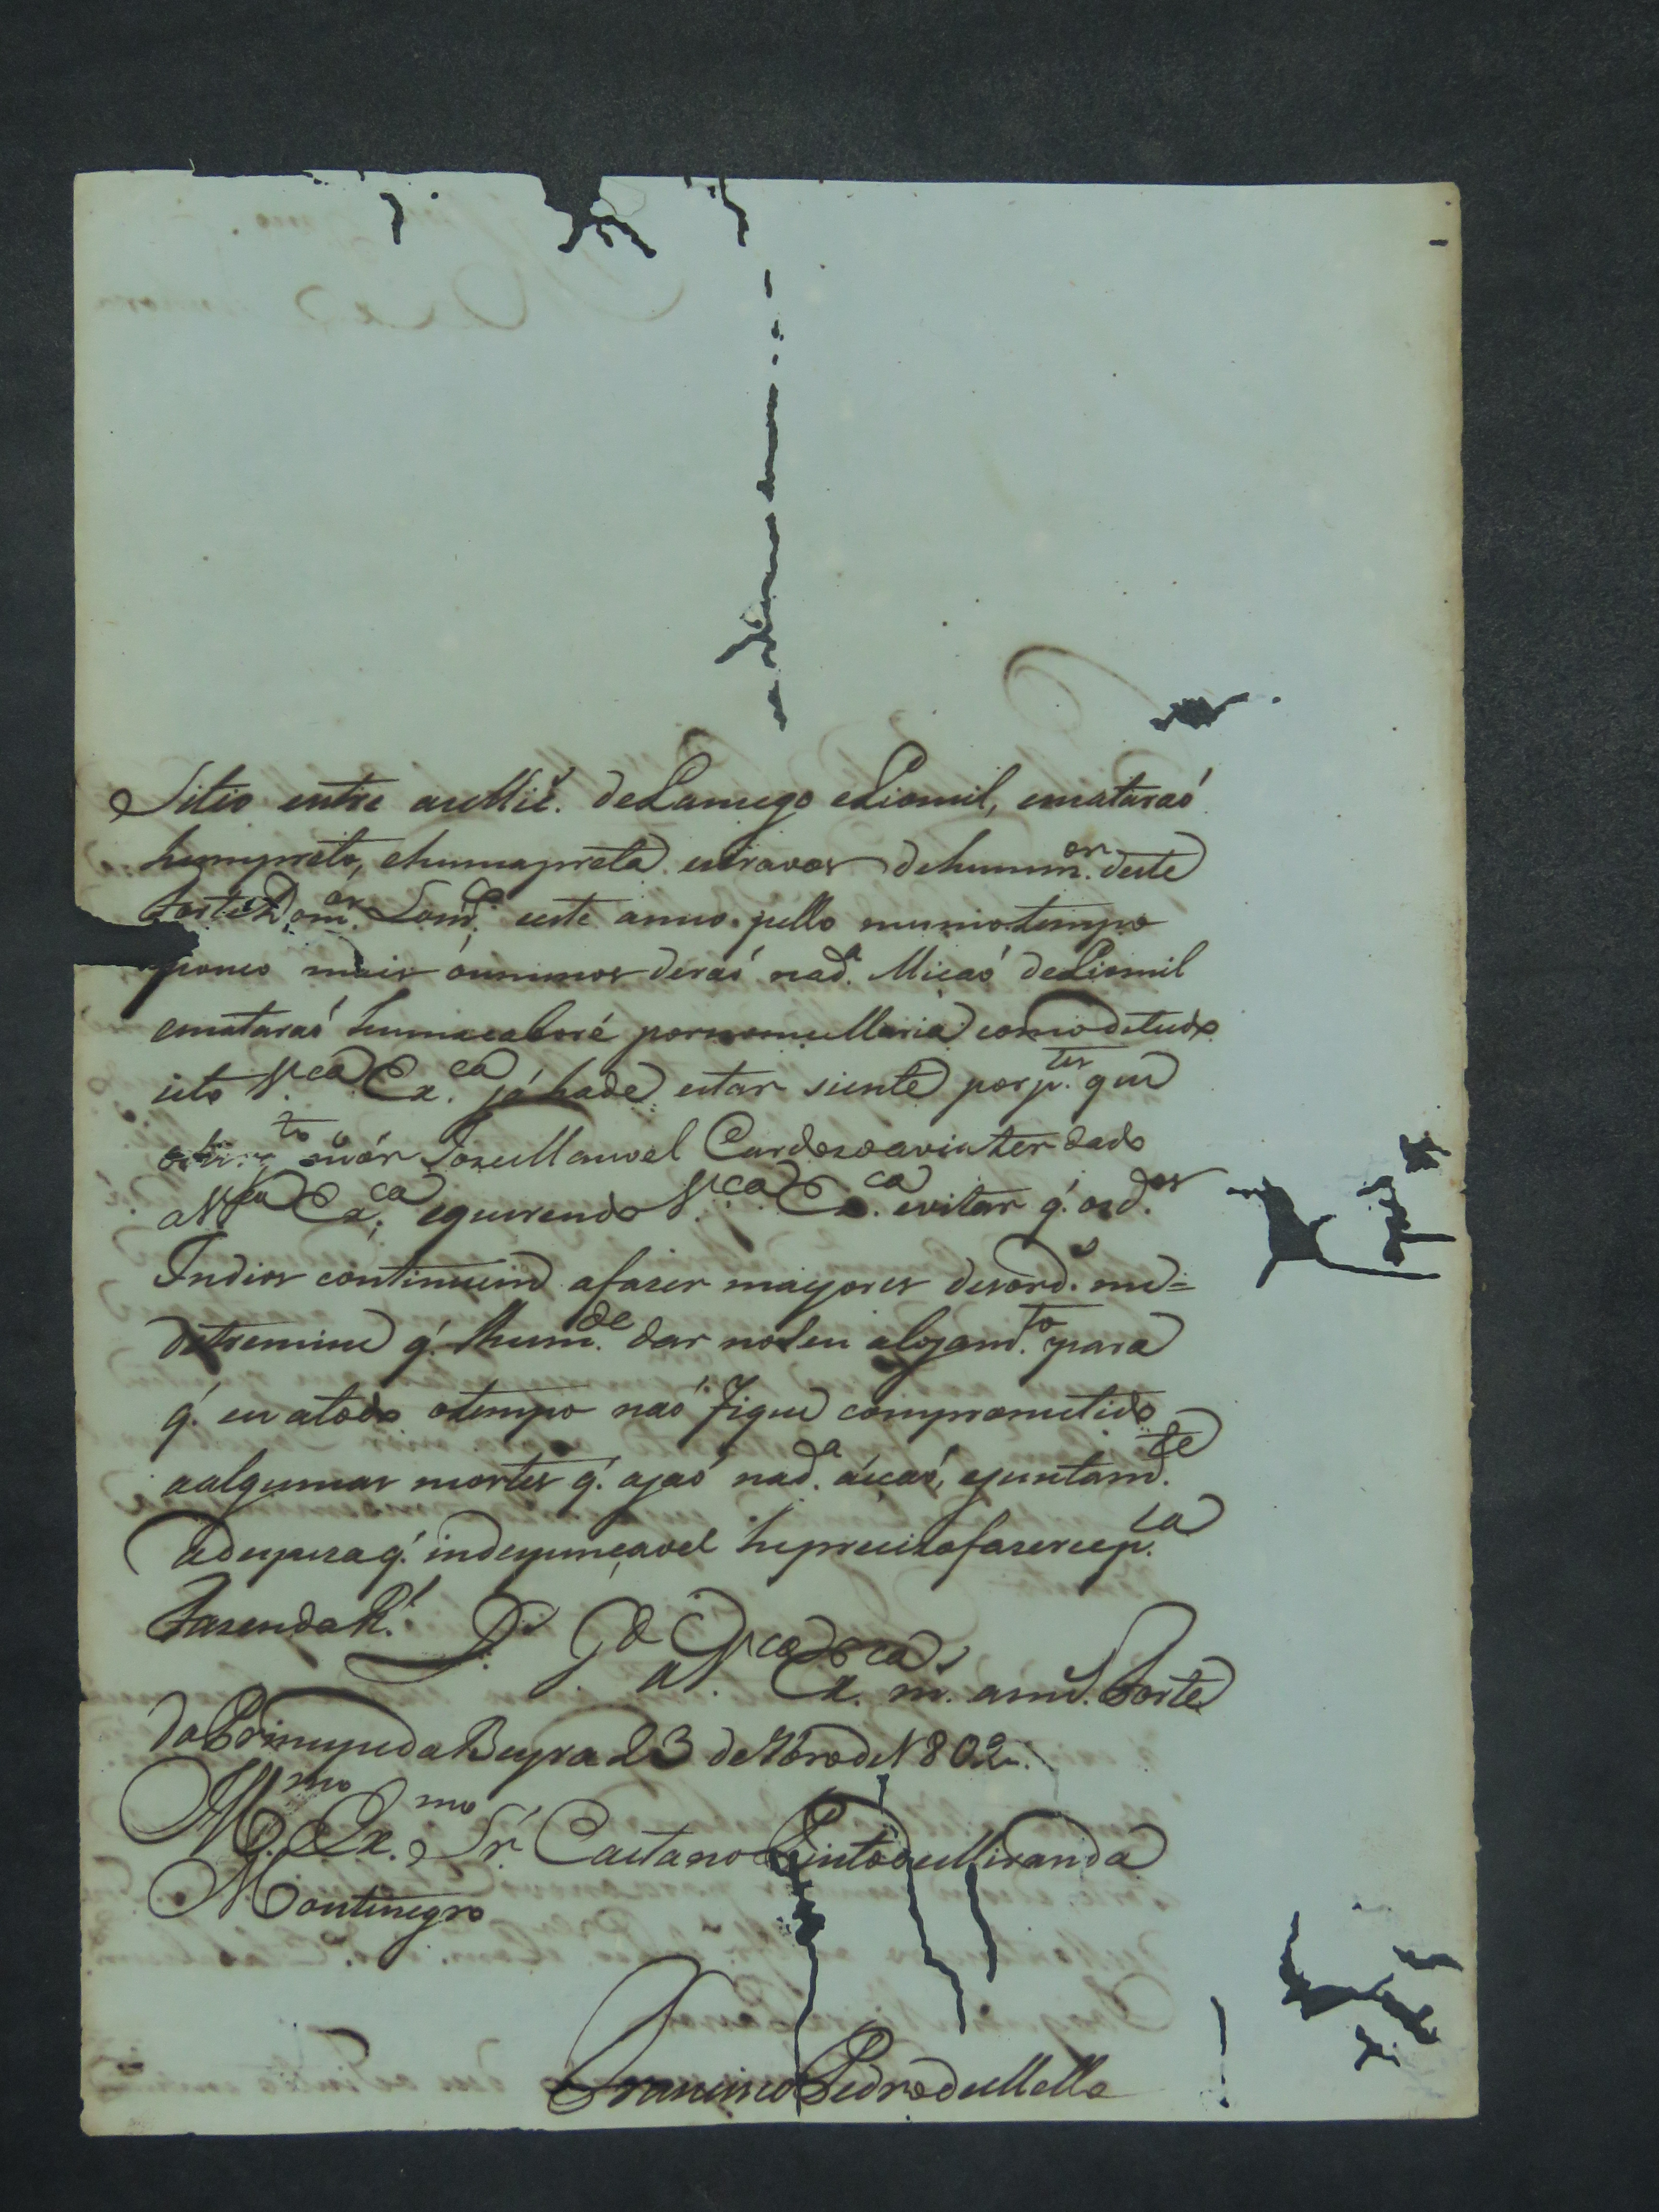 Sitio entre as Miç. de Lamego e Liomil, ematáraõ
hum preto, e huma preta escravos de hum m.or deste
Forte Dom.os Lour.ço este anno pello mesmo tempo
pouco mais ou menos deraõ na d.a Micaõ de Liomil
ematáraõ huma caboré por nome Maria como de tudo
isto V.ca Ex.ca já hade estar siente por p.tes que
mór Joze Manoel Cardozo avia ter dado
a V.ca Ex.ca e querendo V.ca Ex.ca evitar q̃. os d.os
Indios continuem a fazer mayores desord.s me=
detremine q̃. lhe m.de dar no seu alojam.to para
q̃. eu a todo o tempo naõ fique comprometido
a algumas mortes q̃. ajaõ na d.a áicaõ, e juntam.te
a despeza q̃. indespençavel he precizo fazerce p.la
Fazenda R.l D.s G.de a V.ca Ex.ca m.s ann.s Forte
do Principe da Beyra 23 de 9bro de 1802
Ill.mo Ex.mo Sr. Caetano Pinto de Miranda
Montenegro
Francisco Pedro de Mello